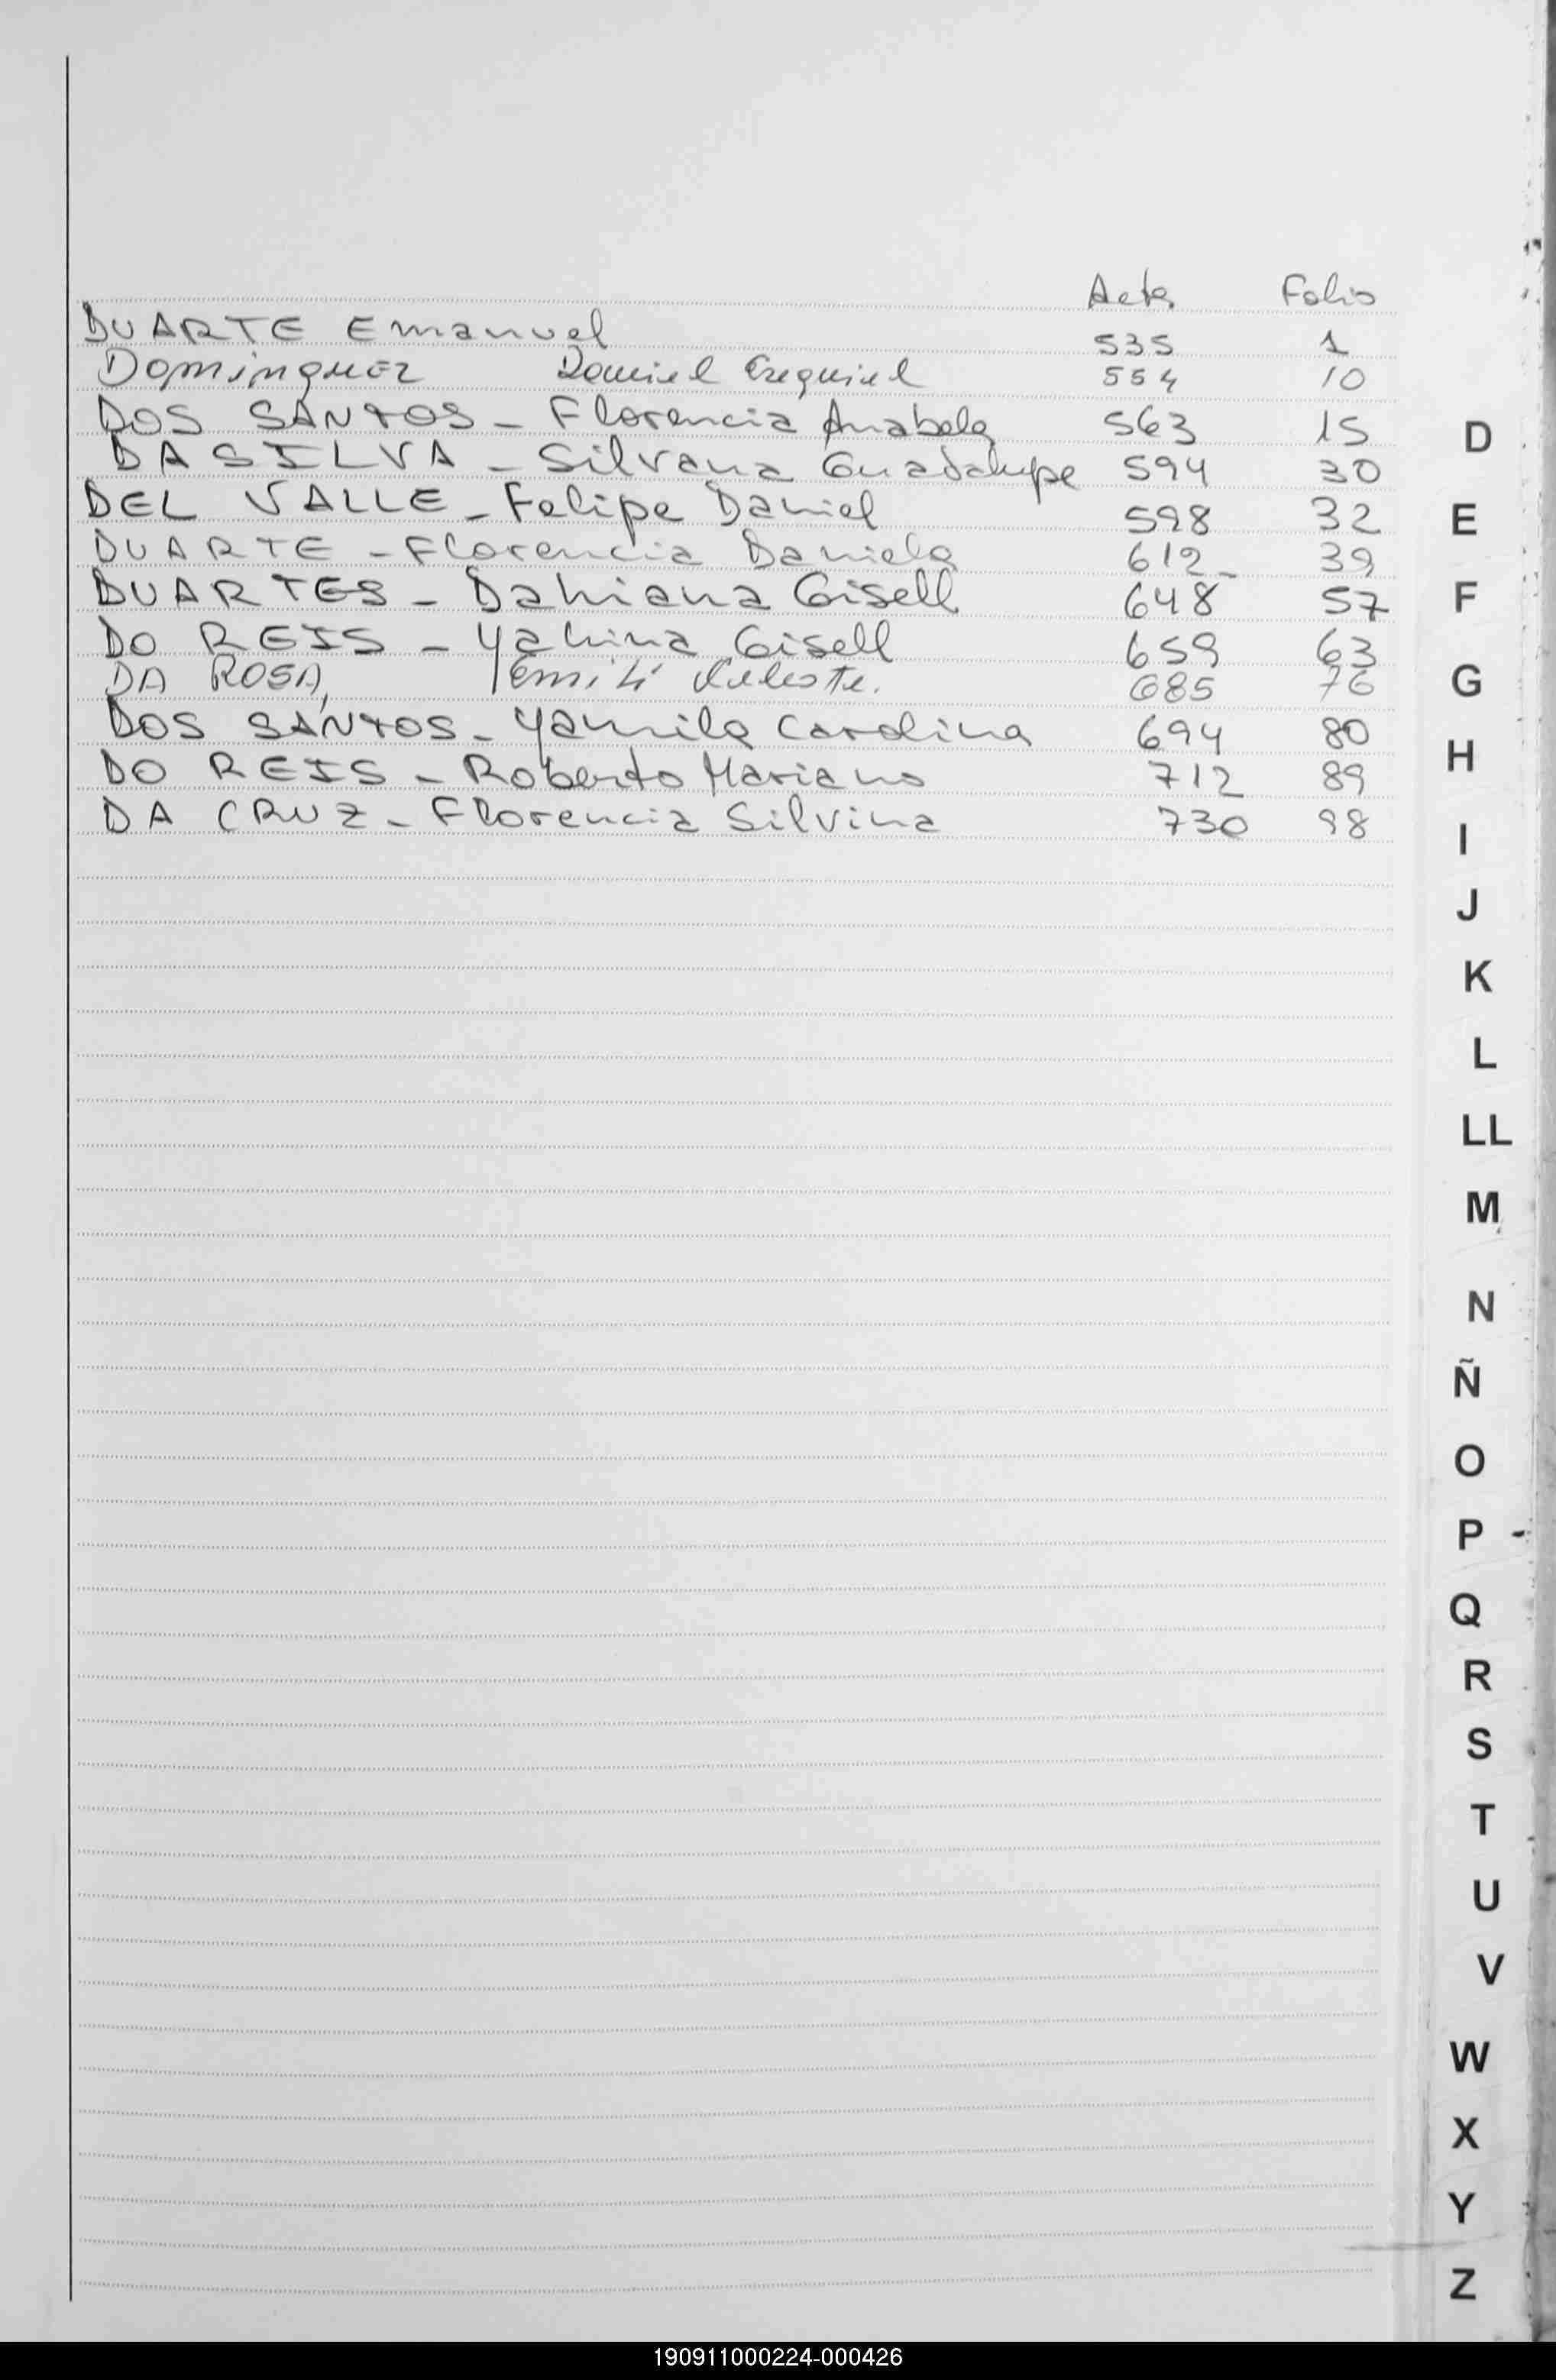 Acta Folio
DUARTE Emanuel 535 1
Dominguez Daniel Ezequiel 554 10
DOS SANTOS - Florencia Anabela 563 15
DA SILVA - Silvana Guadalupe 594 30
DEL VALLE - Felipe Daniel 598 32
DUARTE - Florencia Daniela 612 - 39
DUARTES - Dahiana Gisell 648 57
DO REIS - Yahina Gisell 659 63
DA ROSA, Celeste. 685 76
DOS SANTOS - Yamila Carolina 694 80
DO REIS - Roberto Mariano 712 89
DA CRUZ - Florencia Silvina 730 98
D
E
F
G
H
I
J
K
L
LL
M
N
Ñ
O
P
Q
R
S
T
U
V
W
X
Y
Z
190911000224-000426